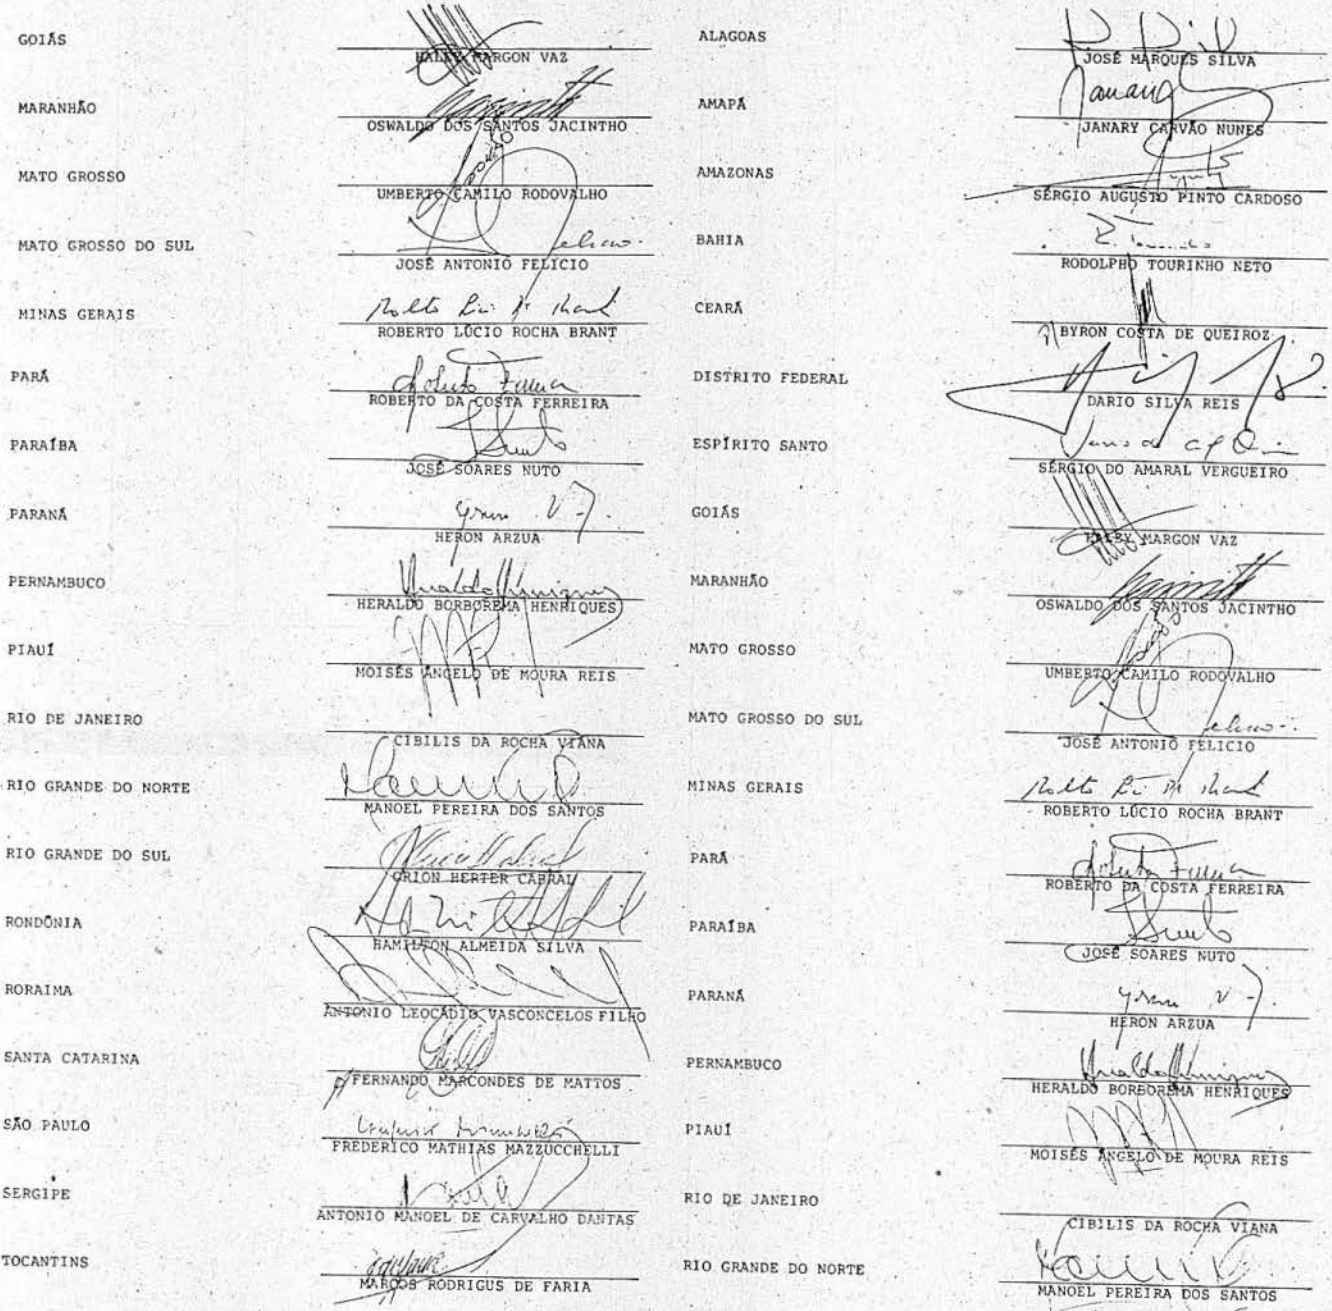 GOIÁS
HALEY MARGON VAZ
MARANHÃO
OSWALDO DOS SANTOS JACINTHO
MATO GROSSO
UMBERTO CAMILO RODOVALHO
MATO GROSSO DO SUL
JOSÉ ANTONIO FELICIO
MINAS GERAIS
ROBERTO LÚCIO ROCHA BRANT
PARÁ
ROBERTO DA COSTA FERREIRA
PARAÍBA
JOSÉ SOARES NUTO
PARANÁ
HERON ARZUA
PERNAMBUCO
HERALDO BORBOREMA HENRIQUES
PIAUÍ
MOISÉS ÂNGELO DE MOURA REIS
RIO DE JANEIRO
CIBILIS DA ROCHA VIANA
RIO GRANDE DO NORTE
MANOEL PEREIRA DOS SANTOS
RIO GRANDE DO SUL
ORION HERTER CABRAL
RONDÔNIA
HAMILTON ALMEIDA SILVA
RORAIMA
ANTONIO LEOCÁDIO VASCONCELOS FILHO
SANTA CATARINA
FERNANDO MARCONDES DE MATTOS
SÃO PAULO
FREDERICO MATHIAS MAZZUCCHELLI
SERGIPE
ANTONIO MANOEL DE CARVALHO DANTAS
TOCANTINS
MARCOS RODRIGUS DE FARIA
ALAGOAS
JOSÉ MARQUES SILVA
AMAPÁ
JANARY CARVÃO NUNES
AMAZONAS
SÉRGIO AUGUSTO PINTO CARDOSO
BAHIA
RODOLPHO TOURINHO NETO
CEARÁ
BYRON COSTA DE QUEIROZ
DISTRITO FEDERAL
DARIO SILVA REIS
ESPÍRITO SANTO
SÉRGIO DO AMARAL VERGUEIRO
GOIÁS
HALEY MARGON VAZ
MARANHÃO
OSWALDO DOS SANTOS JACINTHO
MATO GROSSO
UMBERTO CAMILO RODOVALHO
MATO GROSSO DO SUL
JOSÉ ANTONIO FELICIO
MINAS GERAIS
ROBERTO LÚCIO ROCHA BRANT
PARÁ
ROBERTO DA COSTA FERREIRA
PARAÍBA
JOSÉ SOARES NUTO
PARANÁ
HERON ARZUA
PERNAMBUCO
HERALDO BORBOREMA HENRIQUES
PIAUÍ
MOISÉS ÂNGELO DE MOURA REIS
RIO DE JANEIRO
CIBILIS DA ROCHA VIANA
RIO GRANDE DO NORTE
MANOEL PEREIRA DOS SANTOS